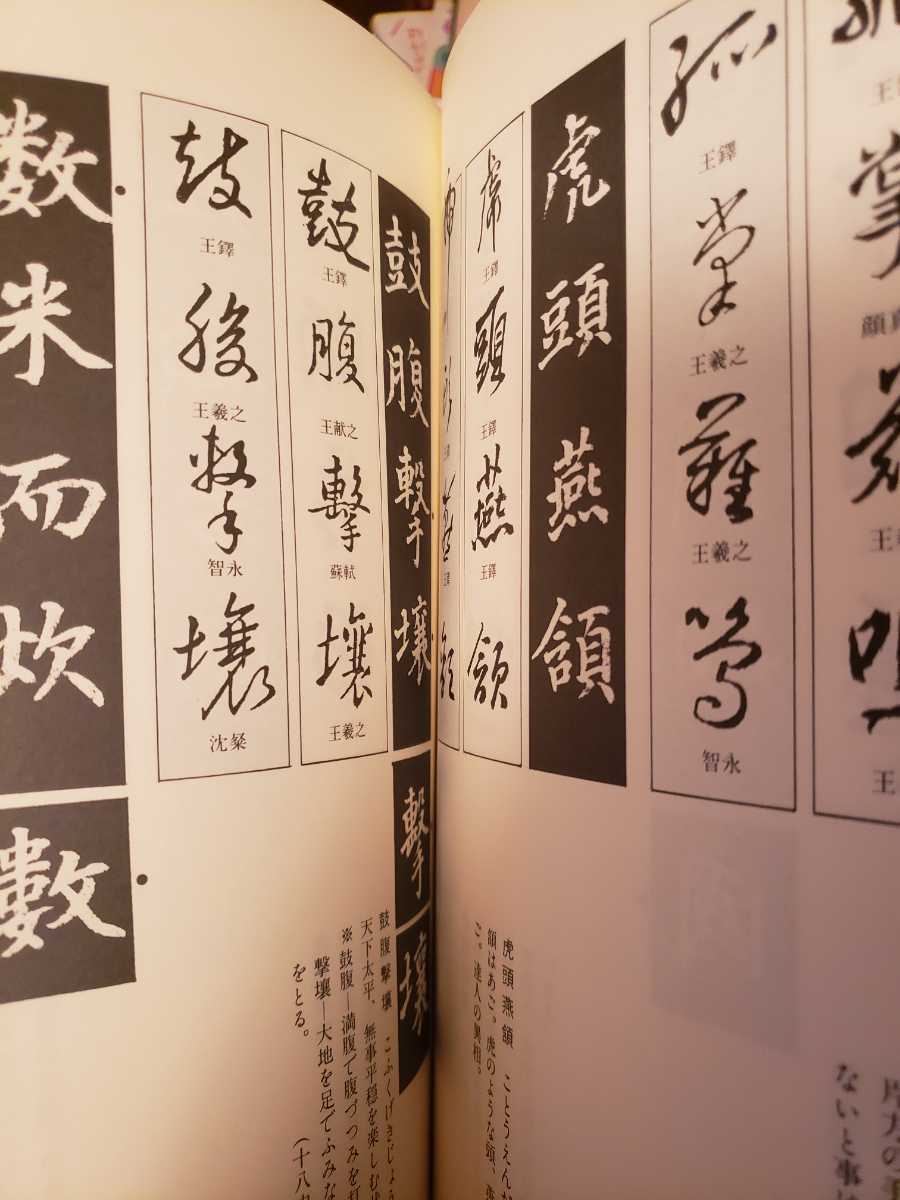 王鐸
王羲之
王羲之
智永
孤掌難鳴
顔真
虎頭燕頷
虎頭燕頷
王鐸
王鐸
王鐸
虎頭燕頷 ことうえんが
頷はあご。虎のような頭、
ご。達人の異相。
ないと事
鼓腹撃壌
撃
壌
鼓腹撃壌
王鐸
王献之
蘇軾
王羲之
鼓腹撃壌
王鐸
王羲之
智永
沈粲
数米而炊
數
鼓腹撃壌 こふくげきじょう
天下太平、無事平穏を楽しむ
※鼓腹―満腹で腹づつみを打
撃壌―大地を足でふみな
をとる。
(十八